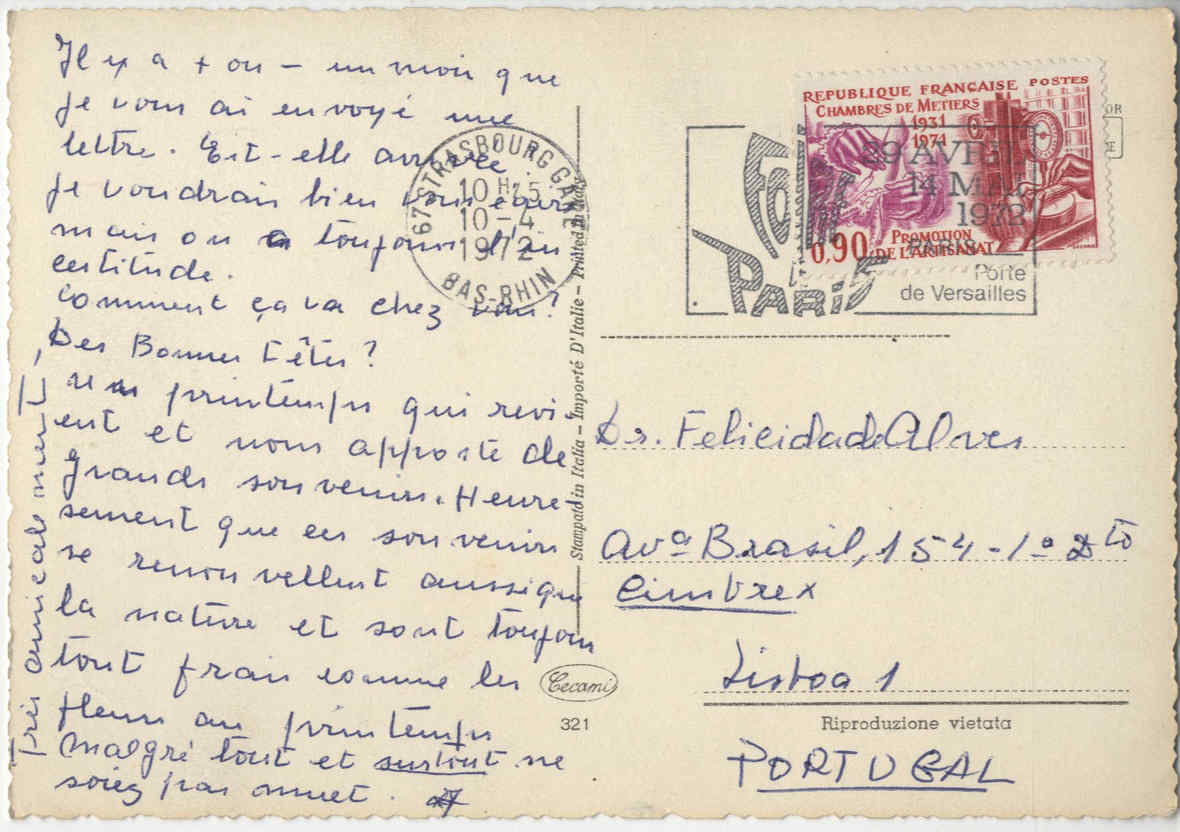 Il y a + ou - un mois que
je vous ai envoyé une
lettre. Est-elle arrivée
Je voudrais bien vous écrire
mais on a toujours l'in
certitude.
Comment ça va chez vous?
Des Bonnes Fêtes?
un printemps qui revi-
ent et nous apporte de
grands souvenirs. Heureu-
sement que ces souvenirs
se renouvellent aussi que
la nature et sont toujours
tout frais comme les
fleurs au printemps
malgré tout et surtout ne
soiez pas muet.
Très amicalement,
67 STRASBOURG GARE
10 H25
10-4
1972
BAS-RHIN
Stampato in Italia - Importé D'Italie - Printed in Italy
Cecami
321
REPUBLIQUE FRANÇAISE POSTES
CHAMBRES DE METIERS
1931
1971
0,90
PROMOTION
DE L'ARTISANAT
29 AVRIL
14 MAI
1972
PARIS
Porte
de Versailles
PARIS
Dr. Felicidade Alves
Avª Brasil, 154-1º Dto
Lisboa 1
Riproduzione vietata
PORTUGAL